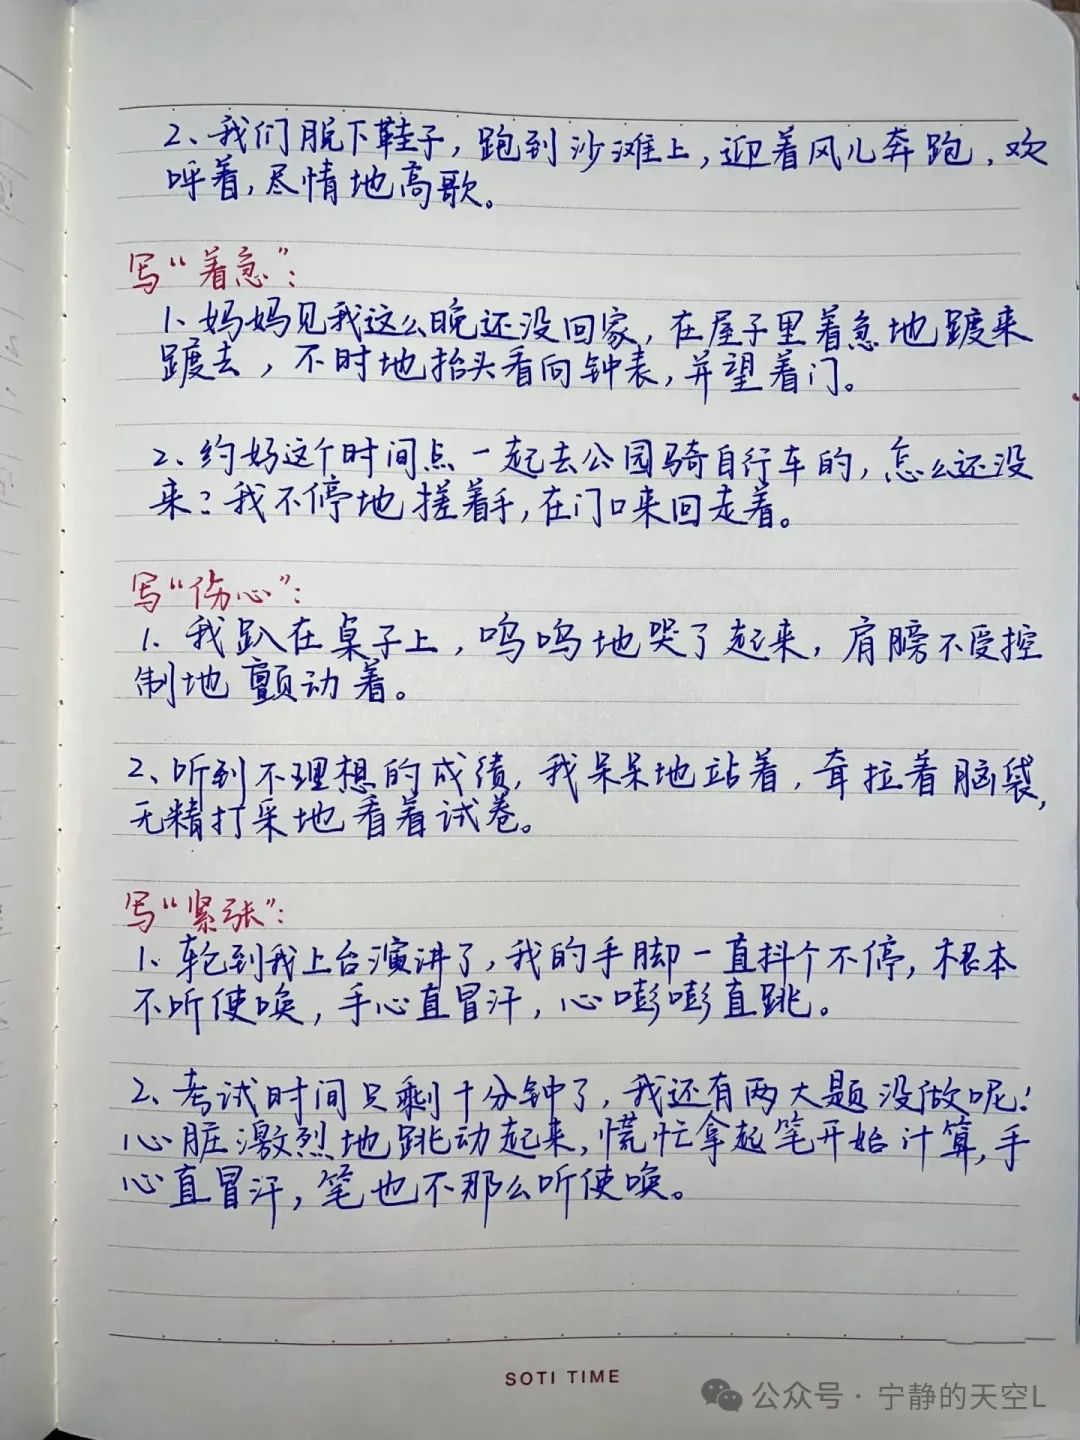 2、我们脱下鞋子，跑到沙滩上，迎着风儿奔跑、欢
呼着，尽情地高歌。
写“着急”：
1、妈妈见我这么晚还没回家，在屋子里着急地踱来
踱去，不时地抬头看向钟表，并望着门。
2、约好这个时间点一起去公园骑自行车的，怎么还没
来？我不停地搓着手，在门口来回走着。
写“伤心”：
1、我趴在桌子上，呜呜地哭了起来，肩膀不受控
制地颤动着。
2、听到不理想的成绩，我呆呆地站着，耷拉着脑袋，
无精打采地看着试卷。
写“紧张”：
1、轮到我上台演讲了，我的手脚一直抖个不停，根本
不听使唤，手心直冒汗，心嘭嘭直跳。
2、考试时间只剩十分钟了，我还有两大题没做呢！
心脏激烈地跳动起来，慌忙拿起笔开始计算，手
心直冒汗，笔也不那么听使唤。
SOTI TIME
公众号·宁静的天空L